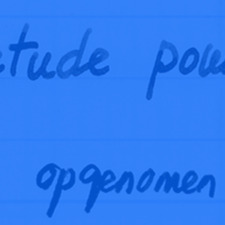 tude pou
opgenomen